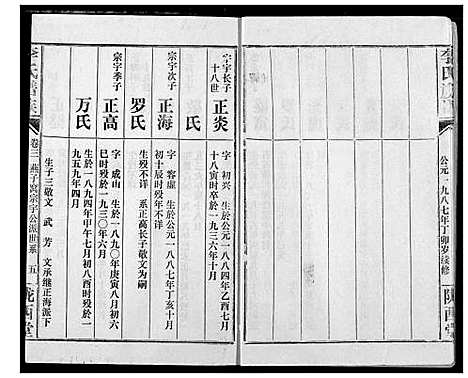 李氏
公元一九八七年丁卯岁续修
陇西堂
十八世
宗宇长子
正炎
字 初兴 生於公元一八八四年乙酉七月
十八寅时卒於一九三六年十月
氏
宗宇次子
正海
字 容虚 生於公元一八八七年丁亥十月
罗氏
生殁不详 系正高长子敬文为嗣
宗宇季子
正高
字 成山 生於一八九〇年庚寅八月初六
巳时殁於一九三〇年六月
万氏
生於一八九四年甲午七月初八酉时殁於一
九五九年四月
生子三敬文 武 芳 文承继正海派下
李氏
卷三 燕子窝宗宇公派世系 五
陇西堂